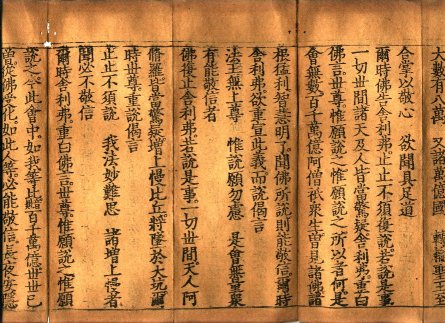 大數有八萬 又諸萬億國 轉輪聖王至
合掌以敬心 欲聞具足道
爾時佛告舍利弗止止不須復說若說是事
一切世間諸天及人皆當驚疑舍利弗重白
佛言世尊惟願說之惟願說之所以者何是
會無數百千萬億阿僧祇衆生曾見諸佛諸
根猛利智慧明了聞佛所說則能敬信爾時
舍利弗欲重宣此義而說偈言
法王無上尊 惟說願勿慮 是會無量衆
有能敬信者
佛復止舍利弗若說是事一切世間天人阿
修羅皆當驚疑增上慢比丘將墜於大坑爾
時世尊重說偈言
止止不須說 我法妙難思 諸增上慢者
聞必不敬信
爾時舍利弗重白佛言世尊惟願說之惟願
說之今此會中如我等比百千萬億世世已
曾從佛受化如此人等必能敬信長夜安隱